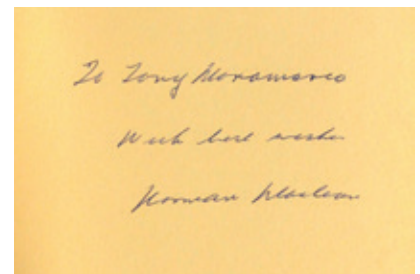 To Tony Maramarco
With best wishes
Norman Maclean